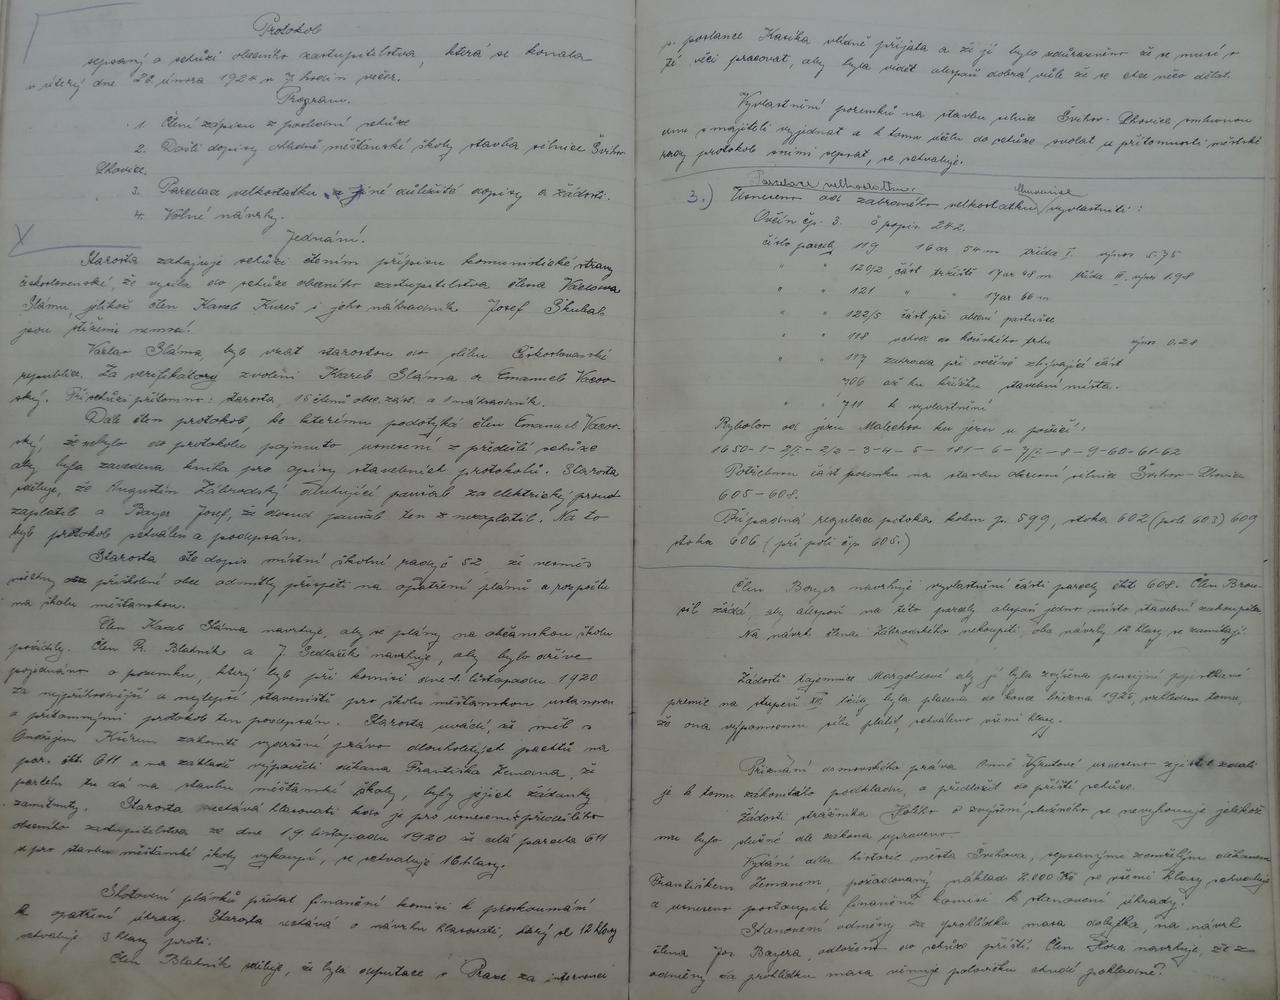 Protokol
sepsaný o schůzi obecního zastupitelstva, která se konala
v úterý dne 28. února 192 v 7 hodin večer.
Program.
1. Čtení zápisu z poslední schůze
2. Došlé dopisy ohledně měšťanské školy stavba silnice Švihov-
Lhovice.
3. Parcelace velkostatku a jiné důležité dopisy a žádosti.
4. Volné návrhy.
Jednání.
Starosta zahajuje schůzi čtením přípisu komunistické strany
československé, že vysílá do schůze obecního zastupitelstva člena Václava
Slámu, jelikož člen Karel Kureš i jeho náhradník Josef Skubal
jsou stiženi nemocí.
Václav Sláma, byl vzat starostou do slibu Československé
republice. Za verifikátory zvoleni Karel Sláma a Emanuel Vacov-
ský. Při schůzi přítomno: starosta, 15 členů obec. zast. a 1 náhradník.
Dále čten protokol, ke kterému podotýká člen Emanuel Vacov-
ský, že nebylo do protokolu pojmuto usnesení z předešlé schůze
aby byla zavedena kniha pro opisy stavebních protokolů. Starosta
sděluje, že Augustin Zábrodský dlužící paušál za elektrický proud
zaplatil a Bayer Josef, že dosud paušál ten z nezaplatil. Na to
byl protokol schválen a podepsán.
Starosta čte dopis místní školní rady č 52, že nesměs
všechny přiškolené obce odmítly přispěti na opatření plánů a rozpočtu
na školu měšťanskou.
Člen Karel Sláma navrhuje, aby se plány na občanskou školu
pořídily. Člen R. Blahník a J. Sedláček navrhuje, aby bylo dříve
pojednáno o pozemku, který byl při komisi dne 1. listopadu 1920
za nejpříhodnější a nejlepší staveniště pro školu měšťanskou ustanoven
a přítomnými protokol ten podepsán. Starosta uvádí, že měl s
Ondřejem Kůrem zákonité vydržení právo dlouholetých pachtů na
par. čkt. 611 a na základě výpovědi děkana Františka Zemana, že
parcelu tu dá na stavbu měšťanské školy, byly jejich žádanky
zamítnuty. Starosta nechává hlasovati kdo je pro usnesení předešlého
obecního zastupitelstva ze dne 19 listopadu 1920 že celá parcela 611
se pro stavbu měšťanské školy vykoupí, se schvaluje 16 hlasy.
Shotovení plánků předat finanční komisi k prozkoumání
k opatření úhrady. Starosta nechává o návrhu hlasovati, který se 12 hlasy
schvaluje 3 hlasy proti.
Člen Blahník sděluje, že byla deputace v Praze za intervenci
p. poslance Kasíka vlídně přijata a že jí bylo zdůrazněno že se musí v
té věci pracovat, aby byla vidět alespoň dobrá vůle že se chce něco dělat.
Vyvlastnění pozemků na stavbu silnice Švihov-Lhovice smluvnou
s majiteli vyjednat a k tomu účelu do schůze svolat u přítomnosti městské
rady protokol snimi sepsat, se schvaluje.
Parcelace velkostatku.
3.) Usneseno od zabraného velkostatku vyvlastniti:
Ovčín čp. 3. č popis. 242.
číslo parcely 119 16 ar 54 m třída I. výnos 5.75
" " 120/2 část tržiště 17 ar 48 m třída III. výnos 1.98
" " 121 " " 17 ar 66 m
" " 122/5 část při obecní pastušce
" " 118 vchod do koňského trhu výnos 0.28
" " 117 zahrada při ovčíně zbývající část
706 až ku křížku stavební místa.
" " 711 k vyvlastnění
Rybolov od jezu Malechov ku jezu u poříčí:
1650-1-2/1-2/2-3-4-5-181-6-7/1-8-9-60-61-62
Potřebnou část pozemku na stavbu okresní silnice Švihov-Lhovice
605-608.
Případná regulace potoka kolem p. 599, stoka 602 (pole 603) 609
stoka 606 (při poli čp. 605.)
Člen Bayer navrhuje vyvlastnění části parcely čkt. 608. Člen Brou-
sil žádá, aby alespoň na této parcely alespoň jedno místo stavební zakoupila
Na návrh člena Zábrodského nekoupiti, oba návrhy 12 hlasy se zamítají.
Žádosti tajemnice Margoldové aby jí byla zvýšena pensijní pojistkové
premie na stupeň XII. třídy byla placena do konce března 1925, vzhledem tomu,
že ona výpomocnou sílu platit, schváleno všemi hlasy.
Přiznání domovského práva Anně Výrutové usneseno zjistit zdali
je k tomu zákonitého podkladu, a předložit do příští schůze.
Žádosti strážníka Holého o zvýšení služného se nevyhovuje jelikož
mu bylo služné dle zákona upraveno.
Vydání díla historie města Švihova, sepsanými zemřelým děkanem
Františkem Zemanem, požadovaný náklad 2.000 Kč se všemi hlasy schvaluje
a usneseno postoupiti finanční komisi k stanovení úhrady.
Stanovení odměny za prohlídku masa dobytka, na návrh
člena Jos. Bayera, odloženo do schůze příští. Člen Hora navrhuje, že z
odměny za prohlídku masa věnuje polovičku chudé pokladně.